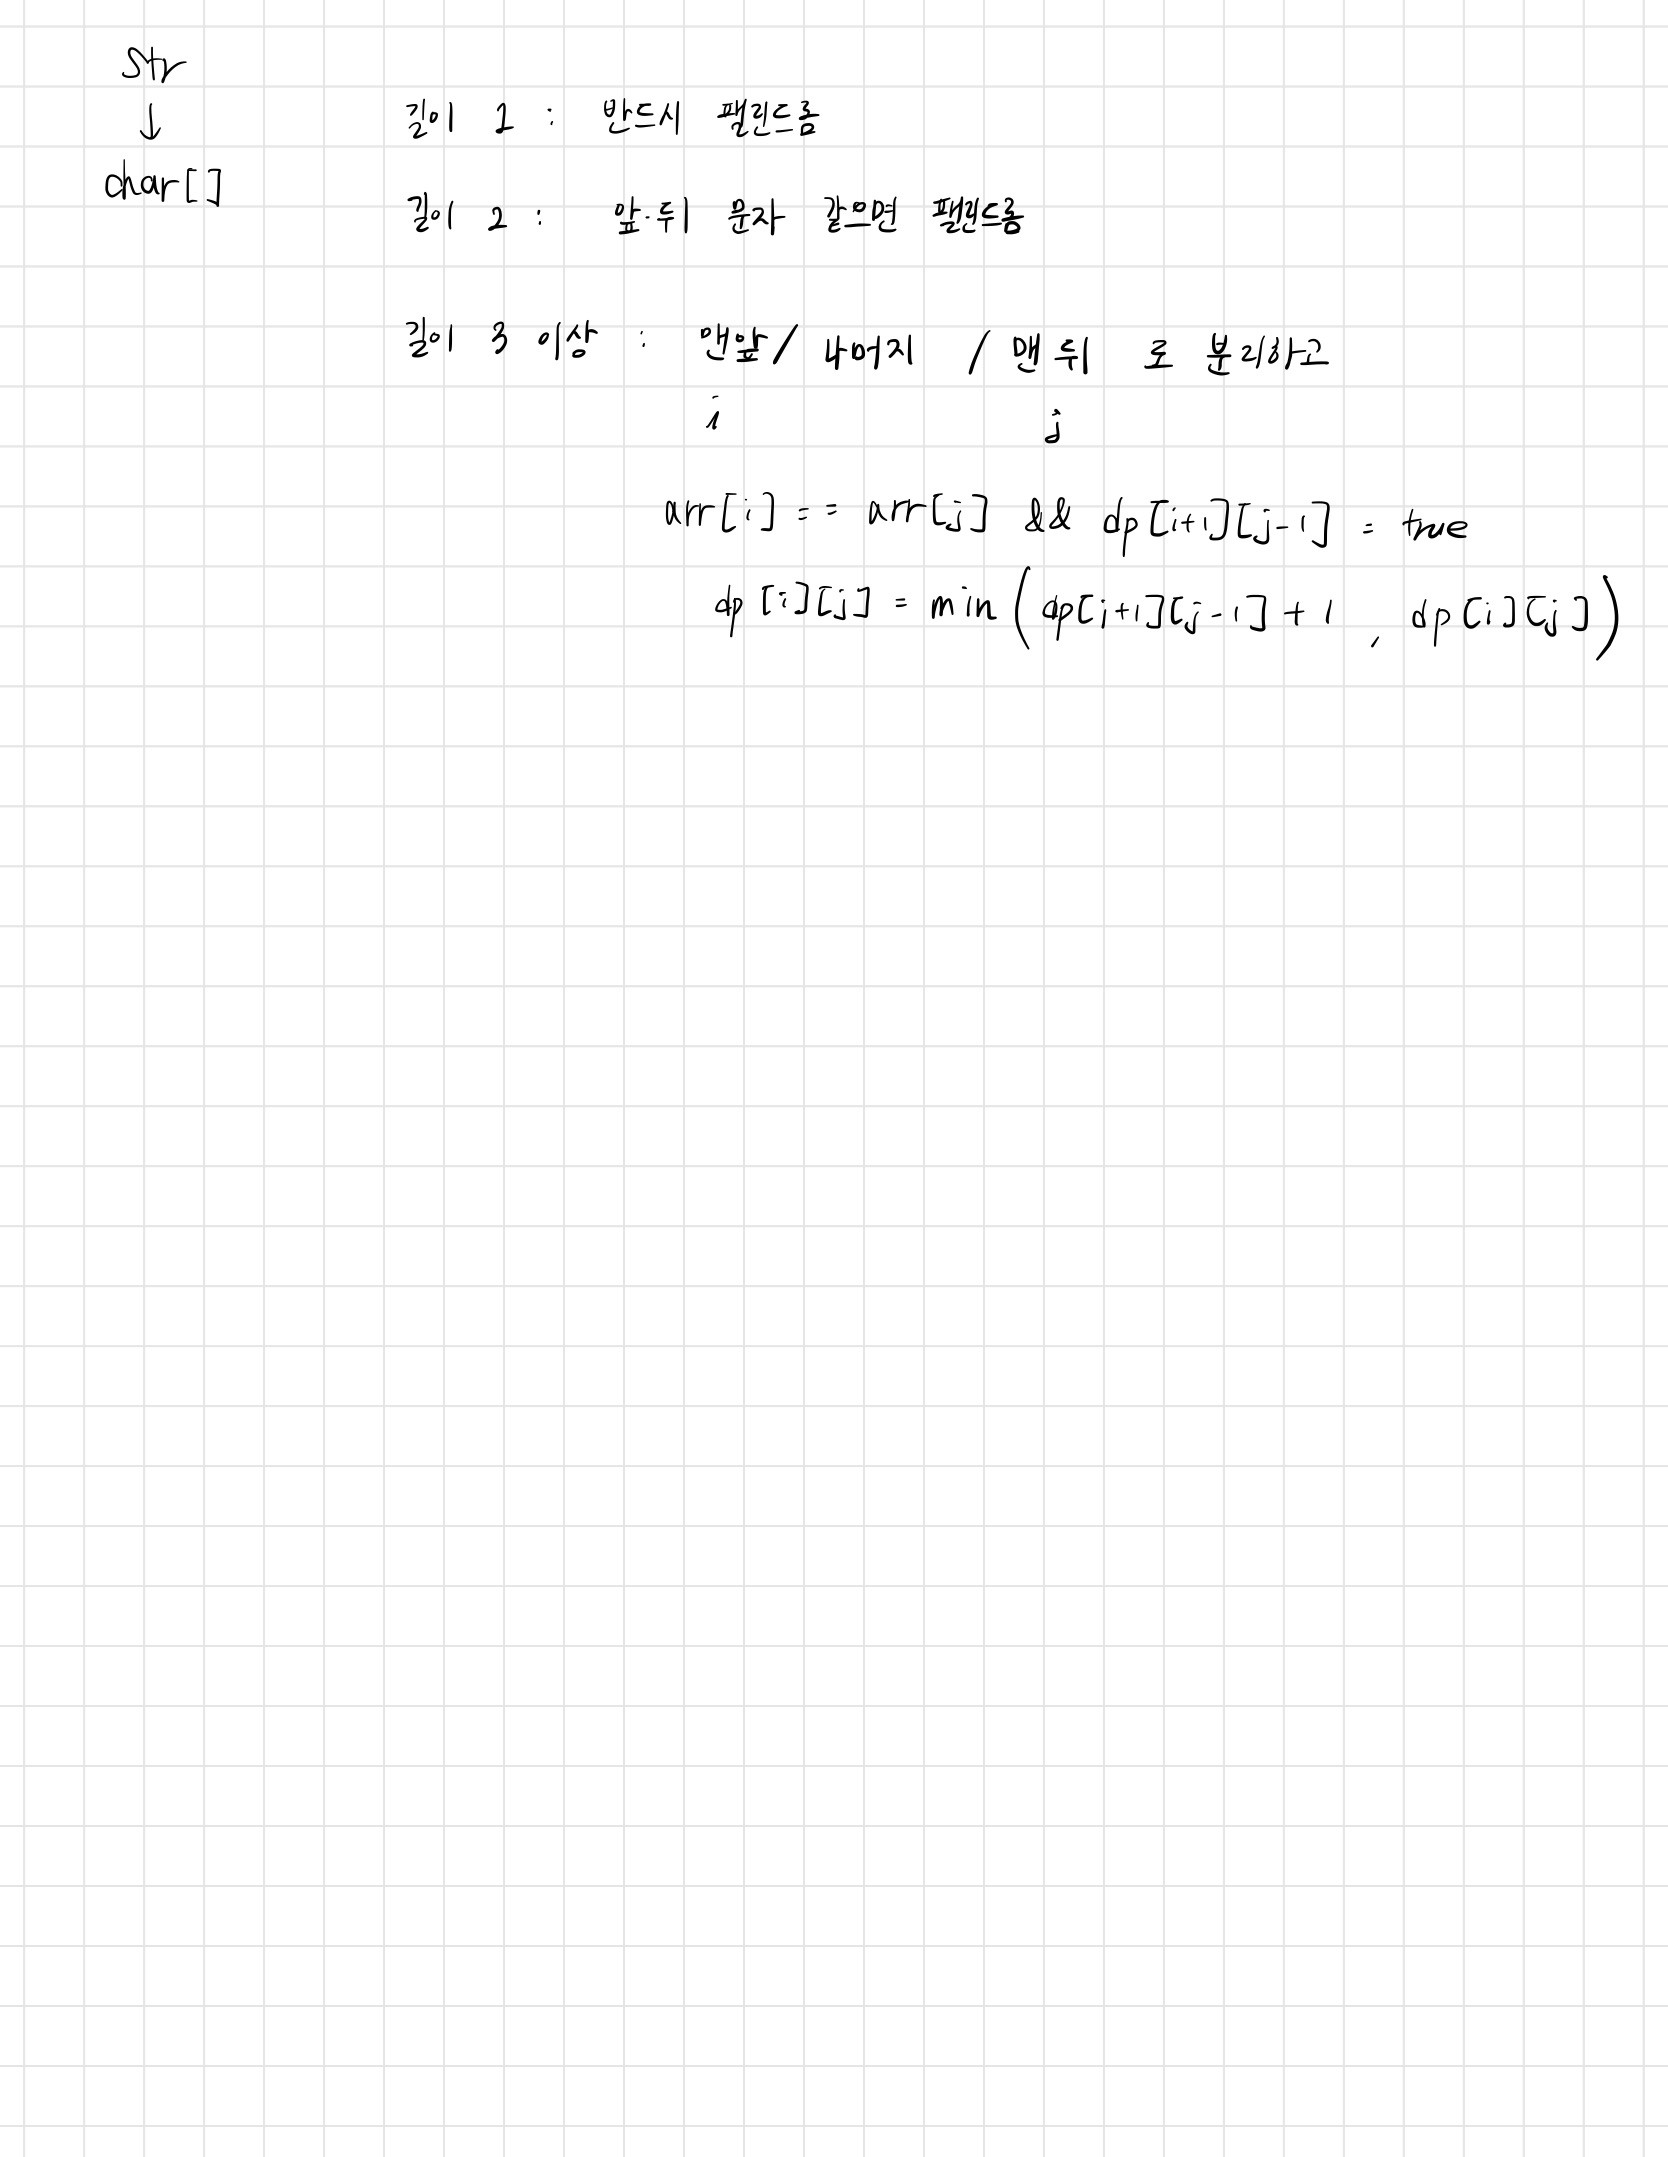 str
↓
char[]
길이 1 : 반드시 팰린드롬
길이 2 : 앞·뒤 문자 같으면 팰린드롬
길이 3 이상 : 맨앞 / 나머지 / 맨 뒤 로 분리하고
i j
arr[i] == arr[j] && dp[i+1][j-1] = true
dp[i][j] = min(dp[i+1][j-1] + 1 , dp[i][j])